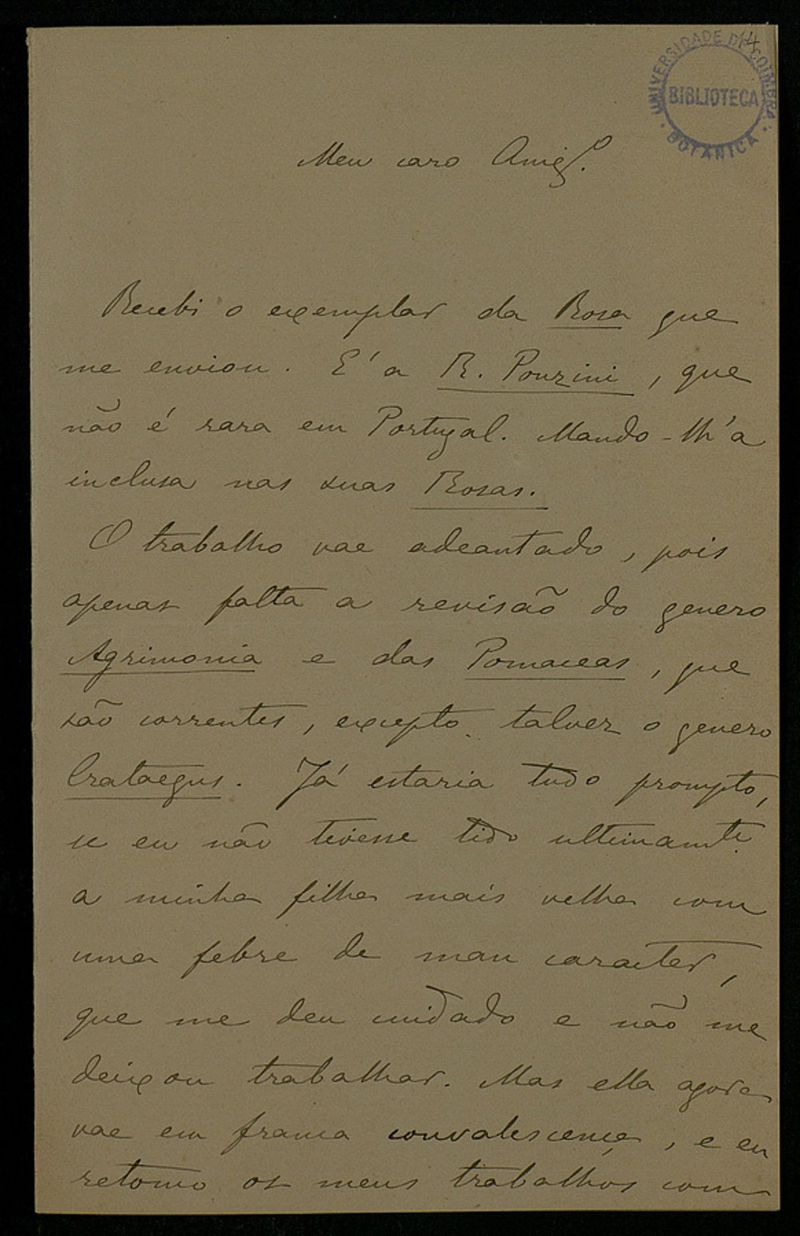 14
UNIVERSIDADE DE COIMBRA
BIBLIOTECA
BOTANICA
Meu caro Amigº.
Recebi o exemplar da Rosa que
me enviou. E' a R. Pouzini, que
não é rara em Portugal. Mando-lh'a
inclusa nas suas Rosas.
O trabalho vae adeantado, pois
apenas falta a revisão do genero
Agrimonia e das Pomaceas, que
são correntes, excepto talvez o genero
Crataegus. Já estaria tudo prompto,
se eu não tivesse tido ultimamte.
a minha filha mais velha com
uma febre de mau caracter,
que me deu cuidado e não me
deixou trabalhar. Mas ella agora
vae em franca convalescença, e eu
retomo os meus trabalhos com